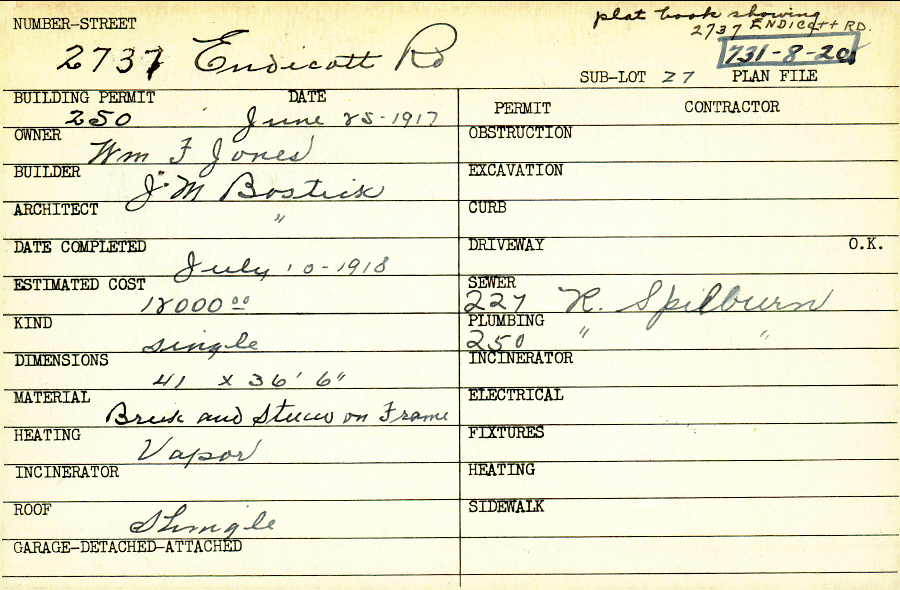 NUMBER-STREET
plat book showing
2737 ENDICOTT RD.
2737 Endicott Rd
731-8-20
SUB-LOT 27 PLAN FILE
BUILDING PERMIT DATE
250 June 25-1917
OWNER
Wm F Jones
BUILDER
J. M Bostick
ARCHITECT
"
DATE COMPLETED
July 10-1918
ESTIMATED COST
18000 00
KIND
single
DIMENSIONS
41 x 36' 6"
MATERIAL
Brick and Stucco on Frame
HEATING
Vapor
INCINERATOR
ROOF
Shingle
GARAGE-DETACHED-ATTACHED
PERMIT CONTRACTOR
OBSTRUCTION
EXCAVATION
CURB
DRIVEWAY O.K.
SEWER
227 R. Spilburn
PLUMBING
250 " "
INCINERATOR
ELECTRICAL
FIXTURES
HEATING
SIDEWALK